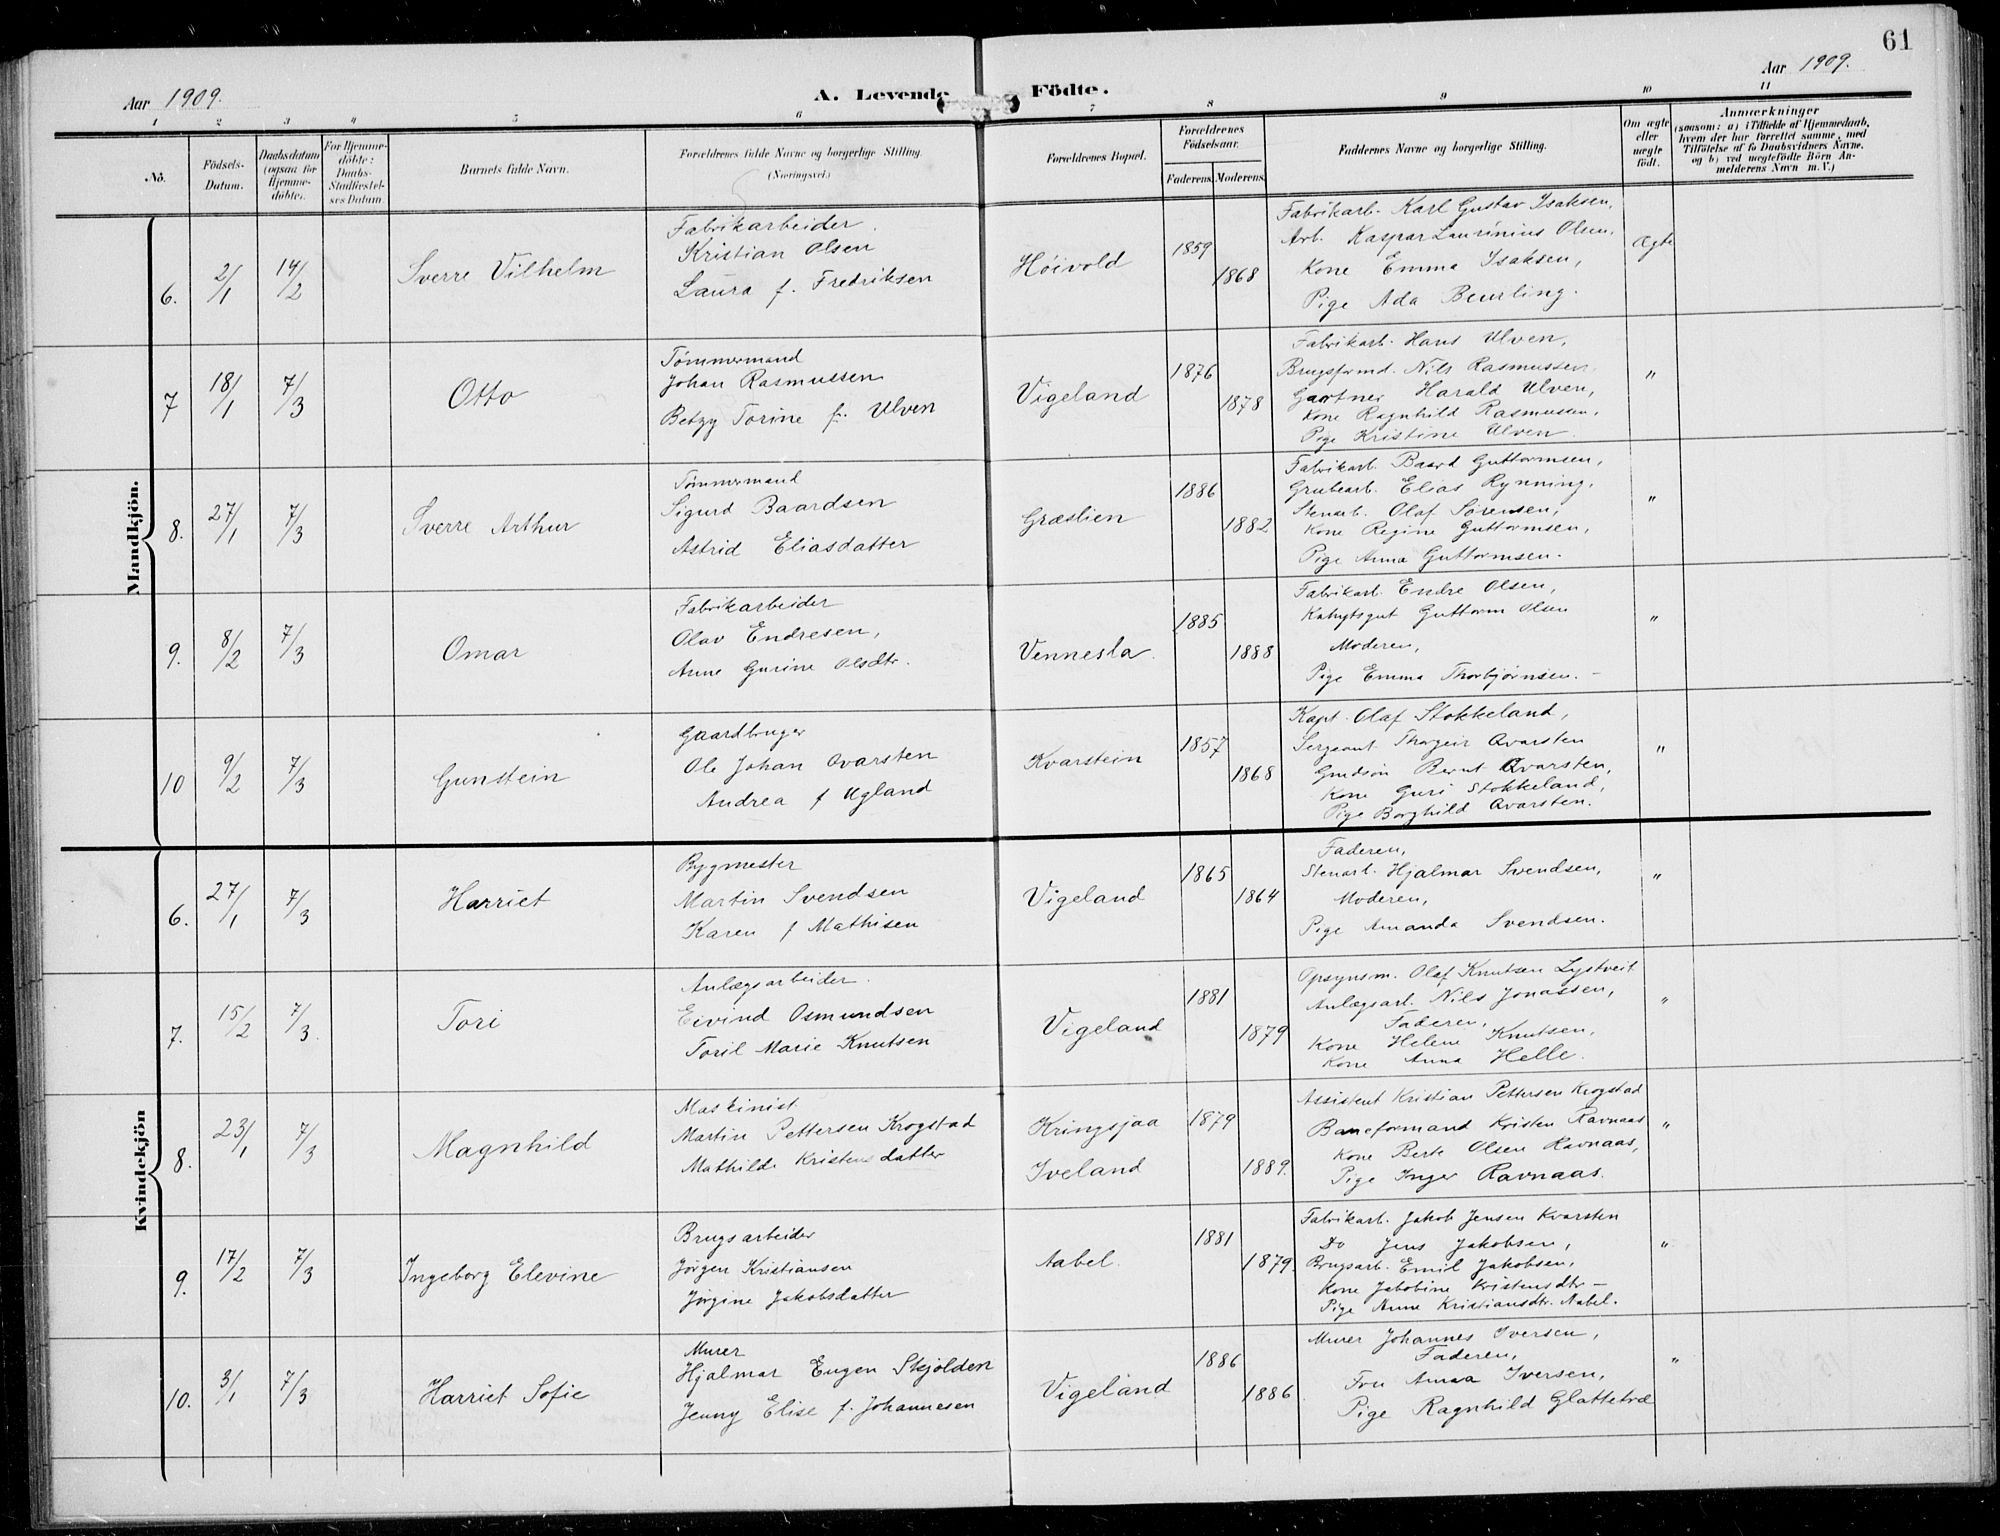 61
Aar 1909.
A. Levende Födte.
Aar 1909.
1 2 3 4 5 6 7 8 9 10 11
No.
Födsels-
Datum.
Daabsdatum
(ogsaa for
Hjemme-
döbte).
For Hjemme-
döbte:
Daabs-
Stadfæstel-
ses Datum.
Barnets fulde Navn.
Forældrenes fulde Navne og borgerlige Stilling.
(Næringsvei.)
Forældrenes Bopæl.
Forældrenes
Födselsaar.
Faderens. Moderens.
Faddernes Navne og borgerlige Stilling.
Om ægte
eller
uægte
födt.
Anmærkninger
(saasom: a) i Tilfælde af Hjemmedaab,
hvem der har forrettet samme, med
Tilföielse af to Daabsvidners Navne,
og b) ved uægtefödte Börn An-
melderens Navn m. V.)
Mandkjön.
6. 2/1 14/2 Sverre Vilhelm
Fabrikarbeider.
Kristian Olsen
Laura f. Fredriksen
Høivold 1859 1868
Fabrikarb. Karl Gustav Isaksen,
Arb. Kaspar Laurinius Olsen,
Kone Emma Isaksen,
Pige Ada Beurling.
Ægte
7 18/1 7/3 Otto
Tømmermand
Johan Rasmussen
Betzy Torine f. Ulven
Vigeland 1876 1878
Fabrikarb. Hans Ulven,
Brugsformd. Nils Rasmussen,
Gartner Harald Ulven,
Kone Ragnhild Rasmussen,
Pige Kristine Ulven.
"
8. 27/1 7/3 Sverre Arthur
Tømmermand
Sigurd Baardsen
Astrid Eliasdatter
Græslien 1886 1882
Fabrikarb. Baard Guttormsen,
Grubearb. Elias Rynning,
Stenarb. Olaf Sørensen,
Kone Regine Guttormsen,
Pige Anna Guttormsen.
"
9. 8/2 7/3 Omar
Fabrikarbeider
Olav Endresen,
Anne Gurine Olsdtr.
Vennesla. 1885 1888
Fabrikarb. Endre Olsen,
Kahytsgut Guttorm Olsen
Moderen,
Pige Emma Thorbjørnsen. -
"
10 9/2 7/3 Gunstein
Gaardbruger
Ole Johan Qvarsten
Andrea f Ugland
Kvarstein 1857 1868
Kapt. Olaf Stokkeland,
Sergeant Thorgeir Qvarsten
Grudsøn Bernt Qvarsten,
Kone Guri Stokkeland,
Pige Borghild Qvarsten.
"
Kvindekjön
6. 27/1 7/3 Harriet
Bygmester
Martin Svendsen
Karen f Mathisen
Vigeland 1865 1864
Faderen,
Stenarb. Hjalmar Svendsen,
Moderen,
Pige Amanda Svendsen.
"
7. 15/2 7/3. Tori
Anlægsarbeider.
Eivind Osmundsen
Toril Marie Knutsen
Vigeland 1881 1879
Opsynsm. Olaf Knutsen Lystveit
Anlægsarb. Nils Jonassen,
Faderen,
Kone Helene Knutsen,
Kone Anna Helle.
"
8. 23/1 7/3 Magnhild
Maskinist
Martin Pettersen Krogstad
Mathilde Kristensdatter
Kringsjaa
Iveland
1879 1889.
Assistent Kristian Pettersen Krogstad
Baneformand Kristen Ravnaas
Kone Berte Olsen Ravnaas,
Pige Inger Ravnaas.
"
9. 17/2 7/3 Ingeborg Elevine
Brugsarbeider
Jørgen Kristiansen
Jørgine Jakobsdatter
Aabel. 1881 1879.
Fabrikarb. Jakob Jensen Kvarsten
Do Jens Jakobsen,
Brugsarb. Emil Jakobsen,
Kone Jabobine Kristensdtr -
Pige Anne Kristiansdtr. Aabel.
"
10. 3/1 7/3 Harriet Sofie
Murer
Hjalmar Eugen Skjolden
Jenny Elise f. Johannesen
Vigeland 1886 1886
Murer Johannes Iversen,
Faderen,
Fru Anna Iversen,
Pige Ragnhild Glattetræ
"